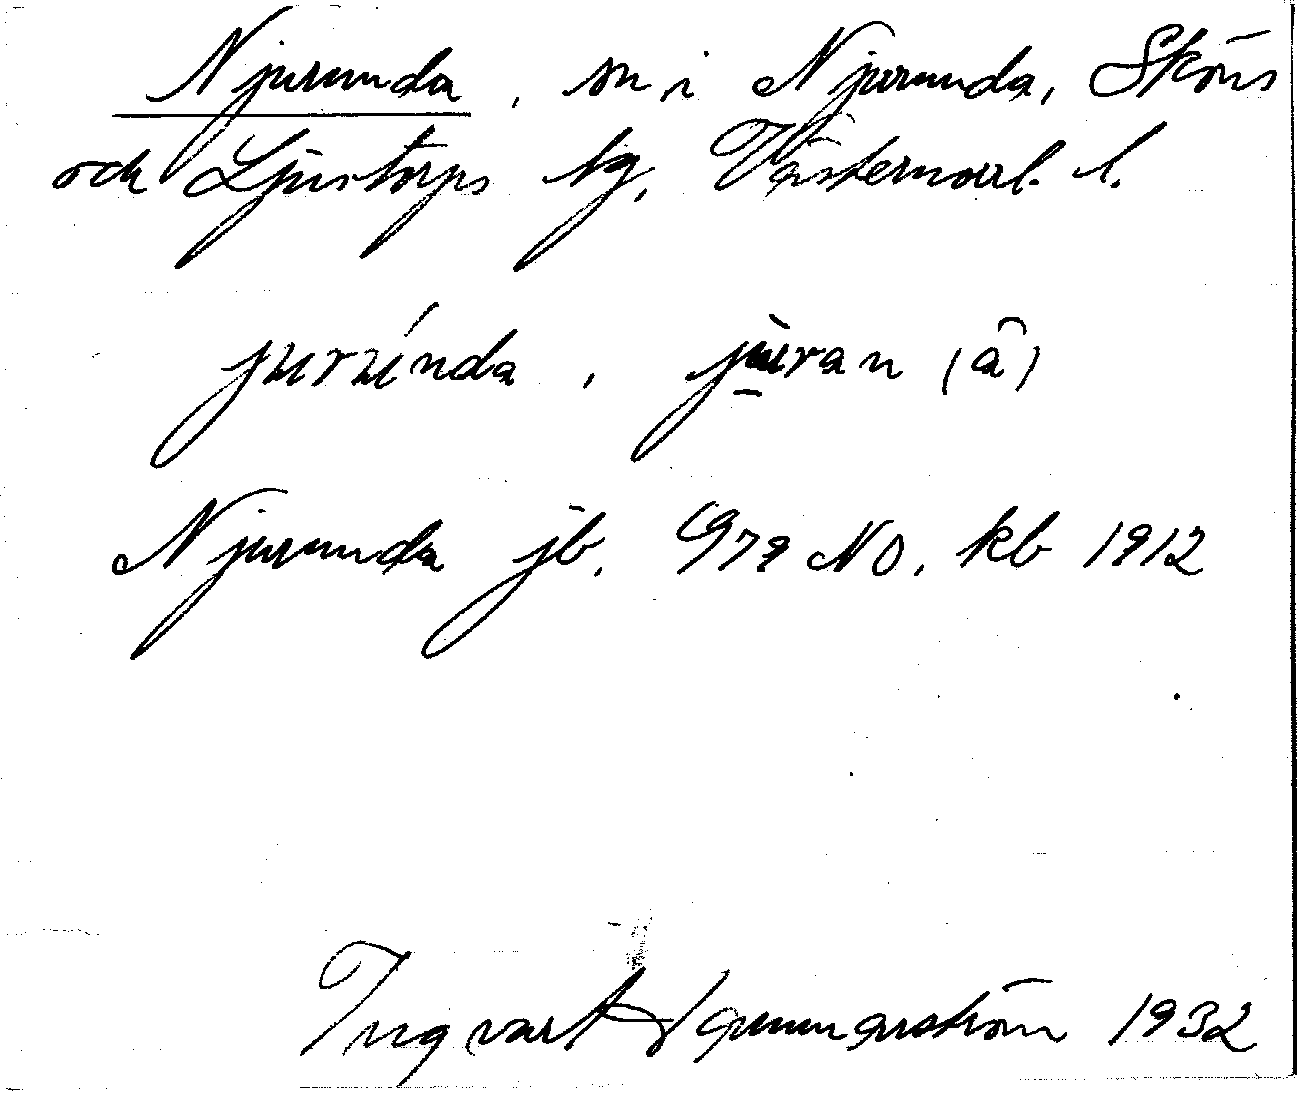 Njurunda, sn i Njurunda, Sköns
och Ljustorps tg, Västernorrl. l.
jurúnda, jùran (â)
Njurunda jb. 979 NO. kb 1912
Ingvar Hammarström 1932